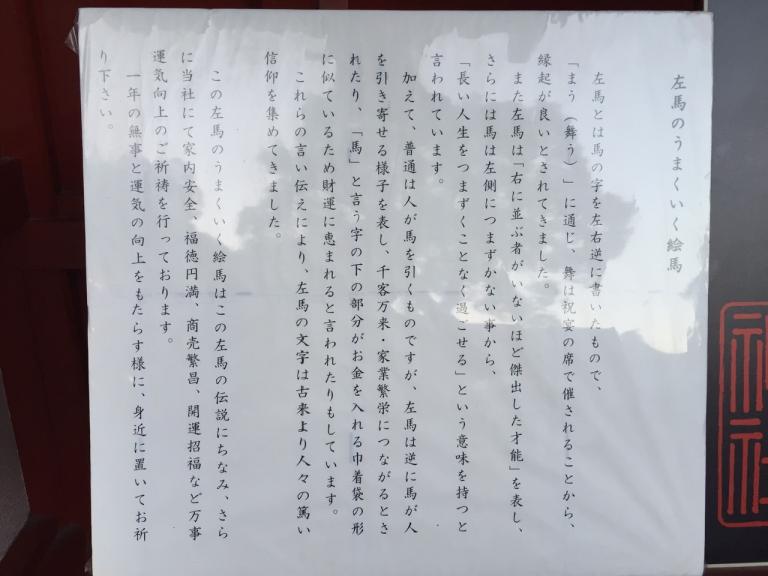 左馬のうまくいく絵馬
左馬とは馬の字を左右逆に書いたもので、
「まう（舞う）」に通じ、舞は祝宴の席で催されることから、
縁起が良いとされてきました。
また左馬は「右に並ぶ者がいないほど傑出した才能」を表し、
さらには馬は左側につまずかない事から、
「長い人生をつまずくことなく過ごせる」という意味を持つと
言われています。
加えて、普通は人が馬を引くものですが、左馬は逆に馬が人
を引き寄せる様子を表し、千客万来・家業繁栄につながるとさ
れたり、「馬」と言う字の下の部分がお金を入れる巾着袋の形
に似ているため財運に恵まれると言われたりもしています。
これらの言い伝えにより、左馬の文字は古来より人々の篤い
信仰を集めてきました。
この左馬のうまくいく絵馬はこの左馬の伝説にちなみ、さら
に当社にて家内安全、福徳円満、商売繁昌、開運招福など万事
運気向上のご祈祷を行っております。
一年の無事と運気の向上をもたらす様に、身近に置いてお祈
り下さい。
神社